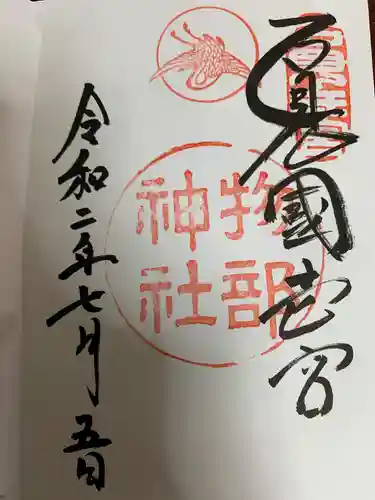 石見國宮
物部
神社
令和二年七月五日